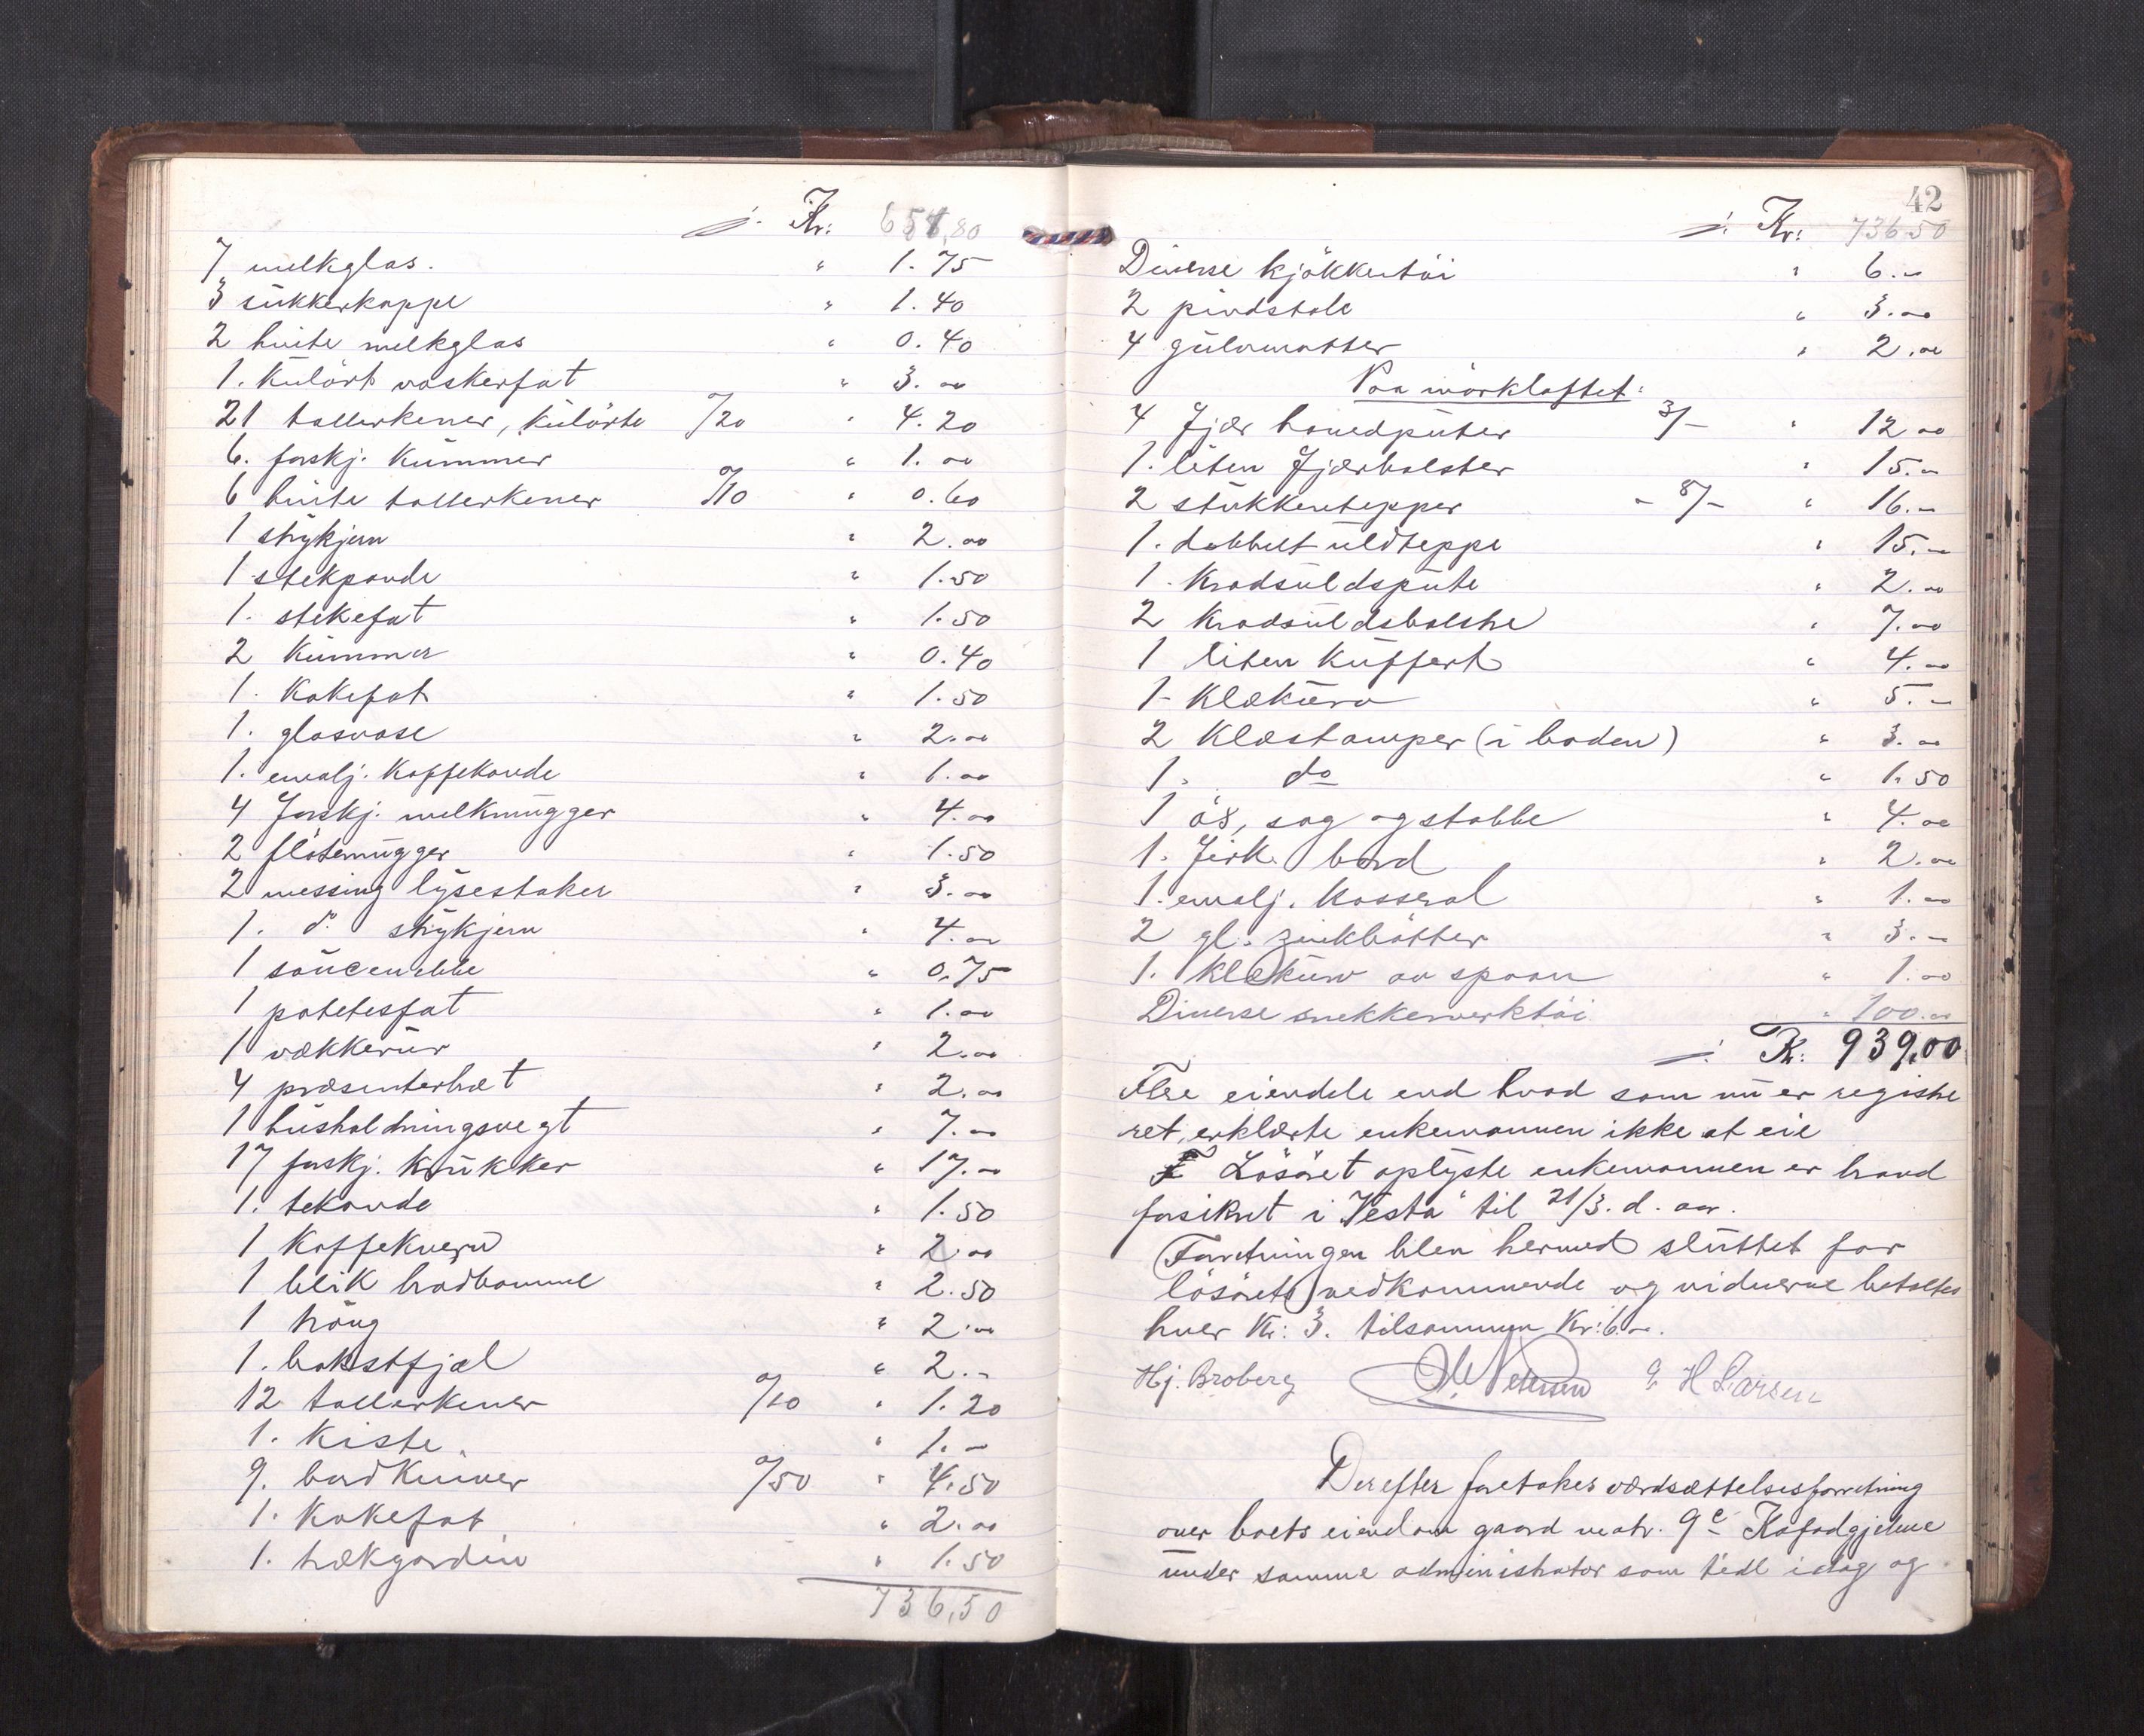 ÷ Kr: 654,80
7 melkglas. " 1.75
3 sukkerkoppe " 1.40
2 hvite melkglas " 0.40
1. kulört vaskerfat " 3.00
21 tallerkener, kulörte 0/20 " 4.20
6. forskj. kummer " 1.00
6 hvite tallerkener 0/10 " 0.60
1 strykjern " 2.00
1 stekpande " 1.50
1. stekefat " 1.50
2 kummer " 0.40
1. kakefat " 1.50
1. glasvase " 2.00
1. emalj. kaffekande " 1.00
4 forskj. melkmugger " 4.00
2 flötemugger " 1.50
2 messing lysestaker " 3.00
1. do strykjern " 4.00
1 saucenebbe " 0.75
1 potetesfat " 1.00
1 vækkerur " 2.00
4 præsenterbræt " 2.00
1 husholdningsvegt " 7.00
17 forskj. krukker " 17.00
1. tekande " 1.50
1 kaffekvern " 2.00
1 blik brödbomme " 2.50
1 traug " 2.00
1. bakstfjæl " 2.-
12 tallerkener 0/10 " 1.20
1. kiste. " 1.-
9. bordkniver 0/50 " 4.50
1. kakefat " 2.00
1. trækgardin " 1.50
736,50
42
÷ Kr: 736.50
Diverse kjökkentöi " 6.-
2 pindstole " 3.00
4 gulvmatter " 2.00
Paa mörkloftet:
4 fjær hovedputer 3/- " 12.00
1. liten fjærbolster " 15.-
2 stukkentepper - 8/- " 16.-
1. dobbelt uldteppe " 15.-
1. kradsuldspute " 2.00
2 kradsuldsbolstre " 7.00
1 liten kuffert " 4.00
1- klækurv " 5.-
2 klæstamper (i boden) " 3.00
1. do " 1.50
1 ös, sag og stabbe " 4.00
1. firk. bord " 2.00
1. emalj. kasserol " 1.00
2 gl. zinkbötter " 3.-
1. klækurv av spaan " 1.00
Diverse snekkerverktöi " 100.00
÷ Kr. 939,00
Flere eiendele end hvad som nu er registre
ret, erklærte enkemannen ikke at eie
Lösöret oplyste enkemannen er brand
forsikret i "Vesta" til 21/3. d. aar.
Forretningen blev hermed sluttet for
lösörets vedkommende og vidnerne betaltes
hver Kr: 3. tilsammen Kr: 6.00.
Hj. Broberg Petersen H Larsen
Derefter foretokes værdsættelsesforretning
over boets eiendom gaard matr. 9c
under samme administrator som tidl idag og